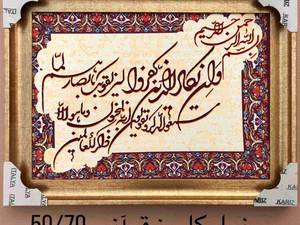 بسم الله الرحمن الرحيم
وان يكاد الذين كفروا ليزلقونك بابصارهم لما
سمعوا الذكر ويقولون انه لمجنون وما هو الا
ذكر للعالمين
KARIZ
50/70